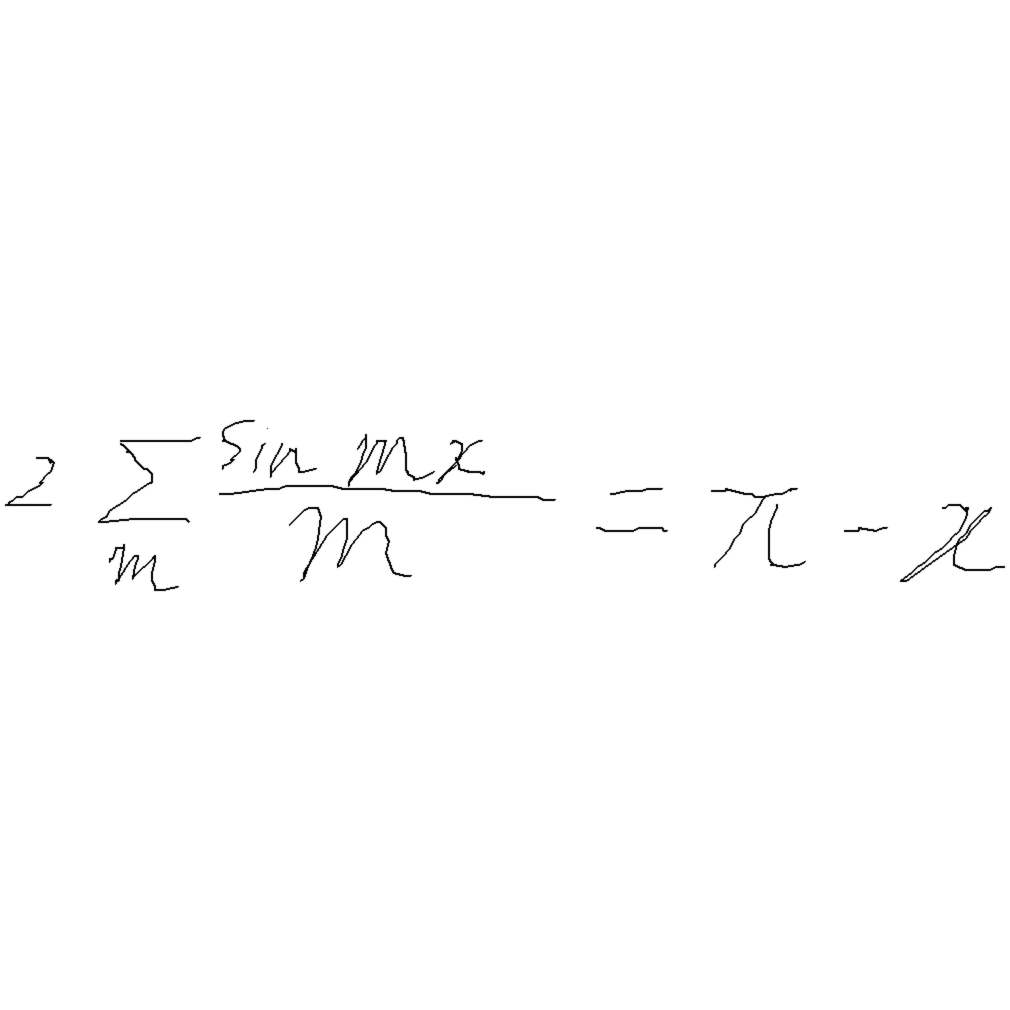 2 \sum_{m} \frac{\sin mx}{m} = \pi - x